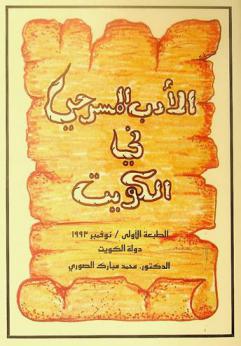 الأدب المسرحي
في
الكويت
الطبعة الأولى / نوفمبر ١٩٩٣
دولة الكويت
الدكتور. محمد مبارك الصوري